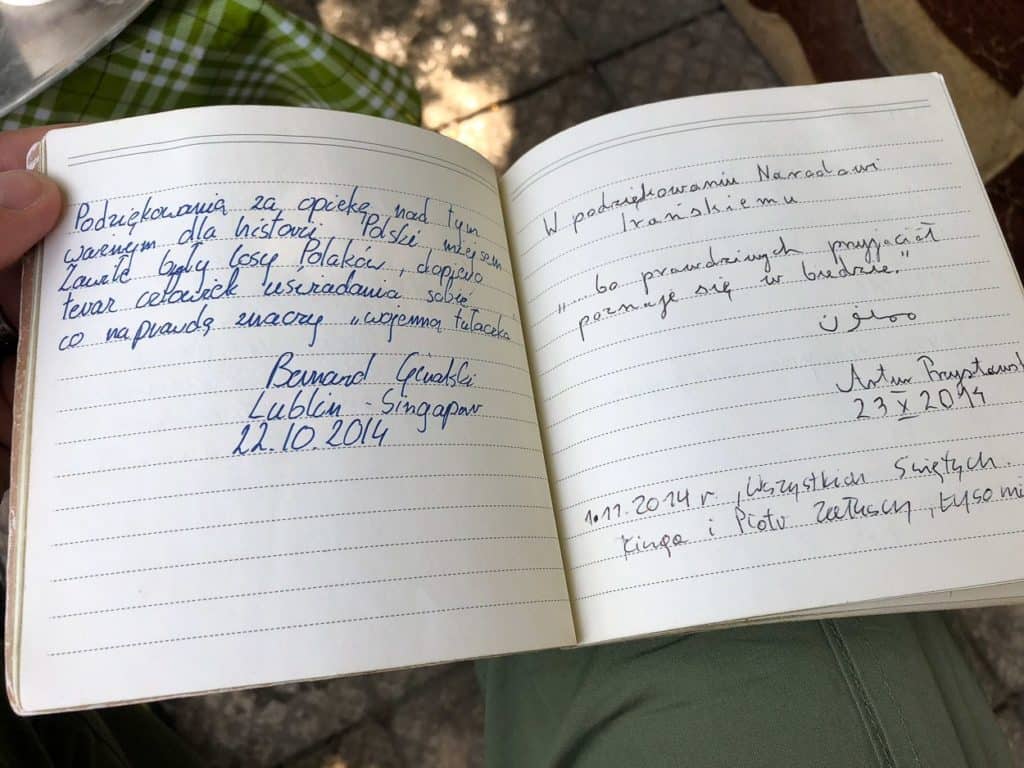 Podziękowania za opiekę nad tym
ważnym dla historii Polski miejscem
Zawiłe były losy Polaków, dopiero
teraz człowiek uświadamia sobie
co naprawdę znaczy „wojenna tułaczka
Bernard
Lublin - Singapur
22.10.2014
W podziękowaniu Narodowi
Irańskiemu
„... bo prawdziwych przyjaciół
poznaje się w biedzie."
ممنون
Artur
23 X 2014
1.11.2014 r., Wszystkich Świętych.
Kinga i Piotr